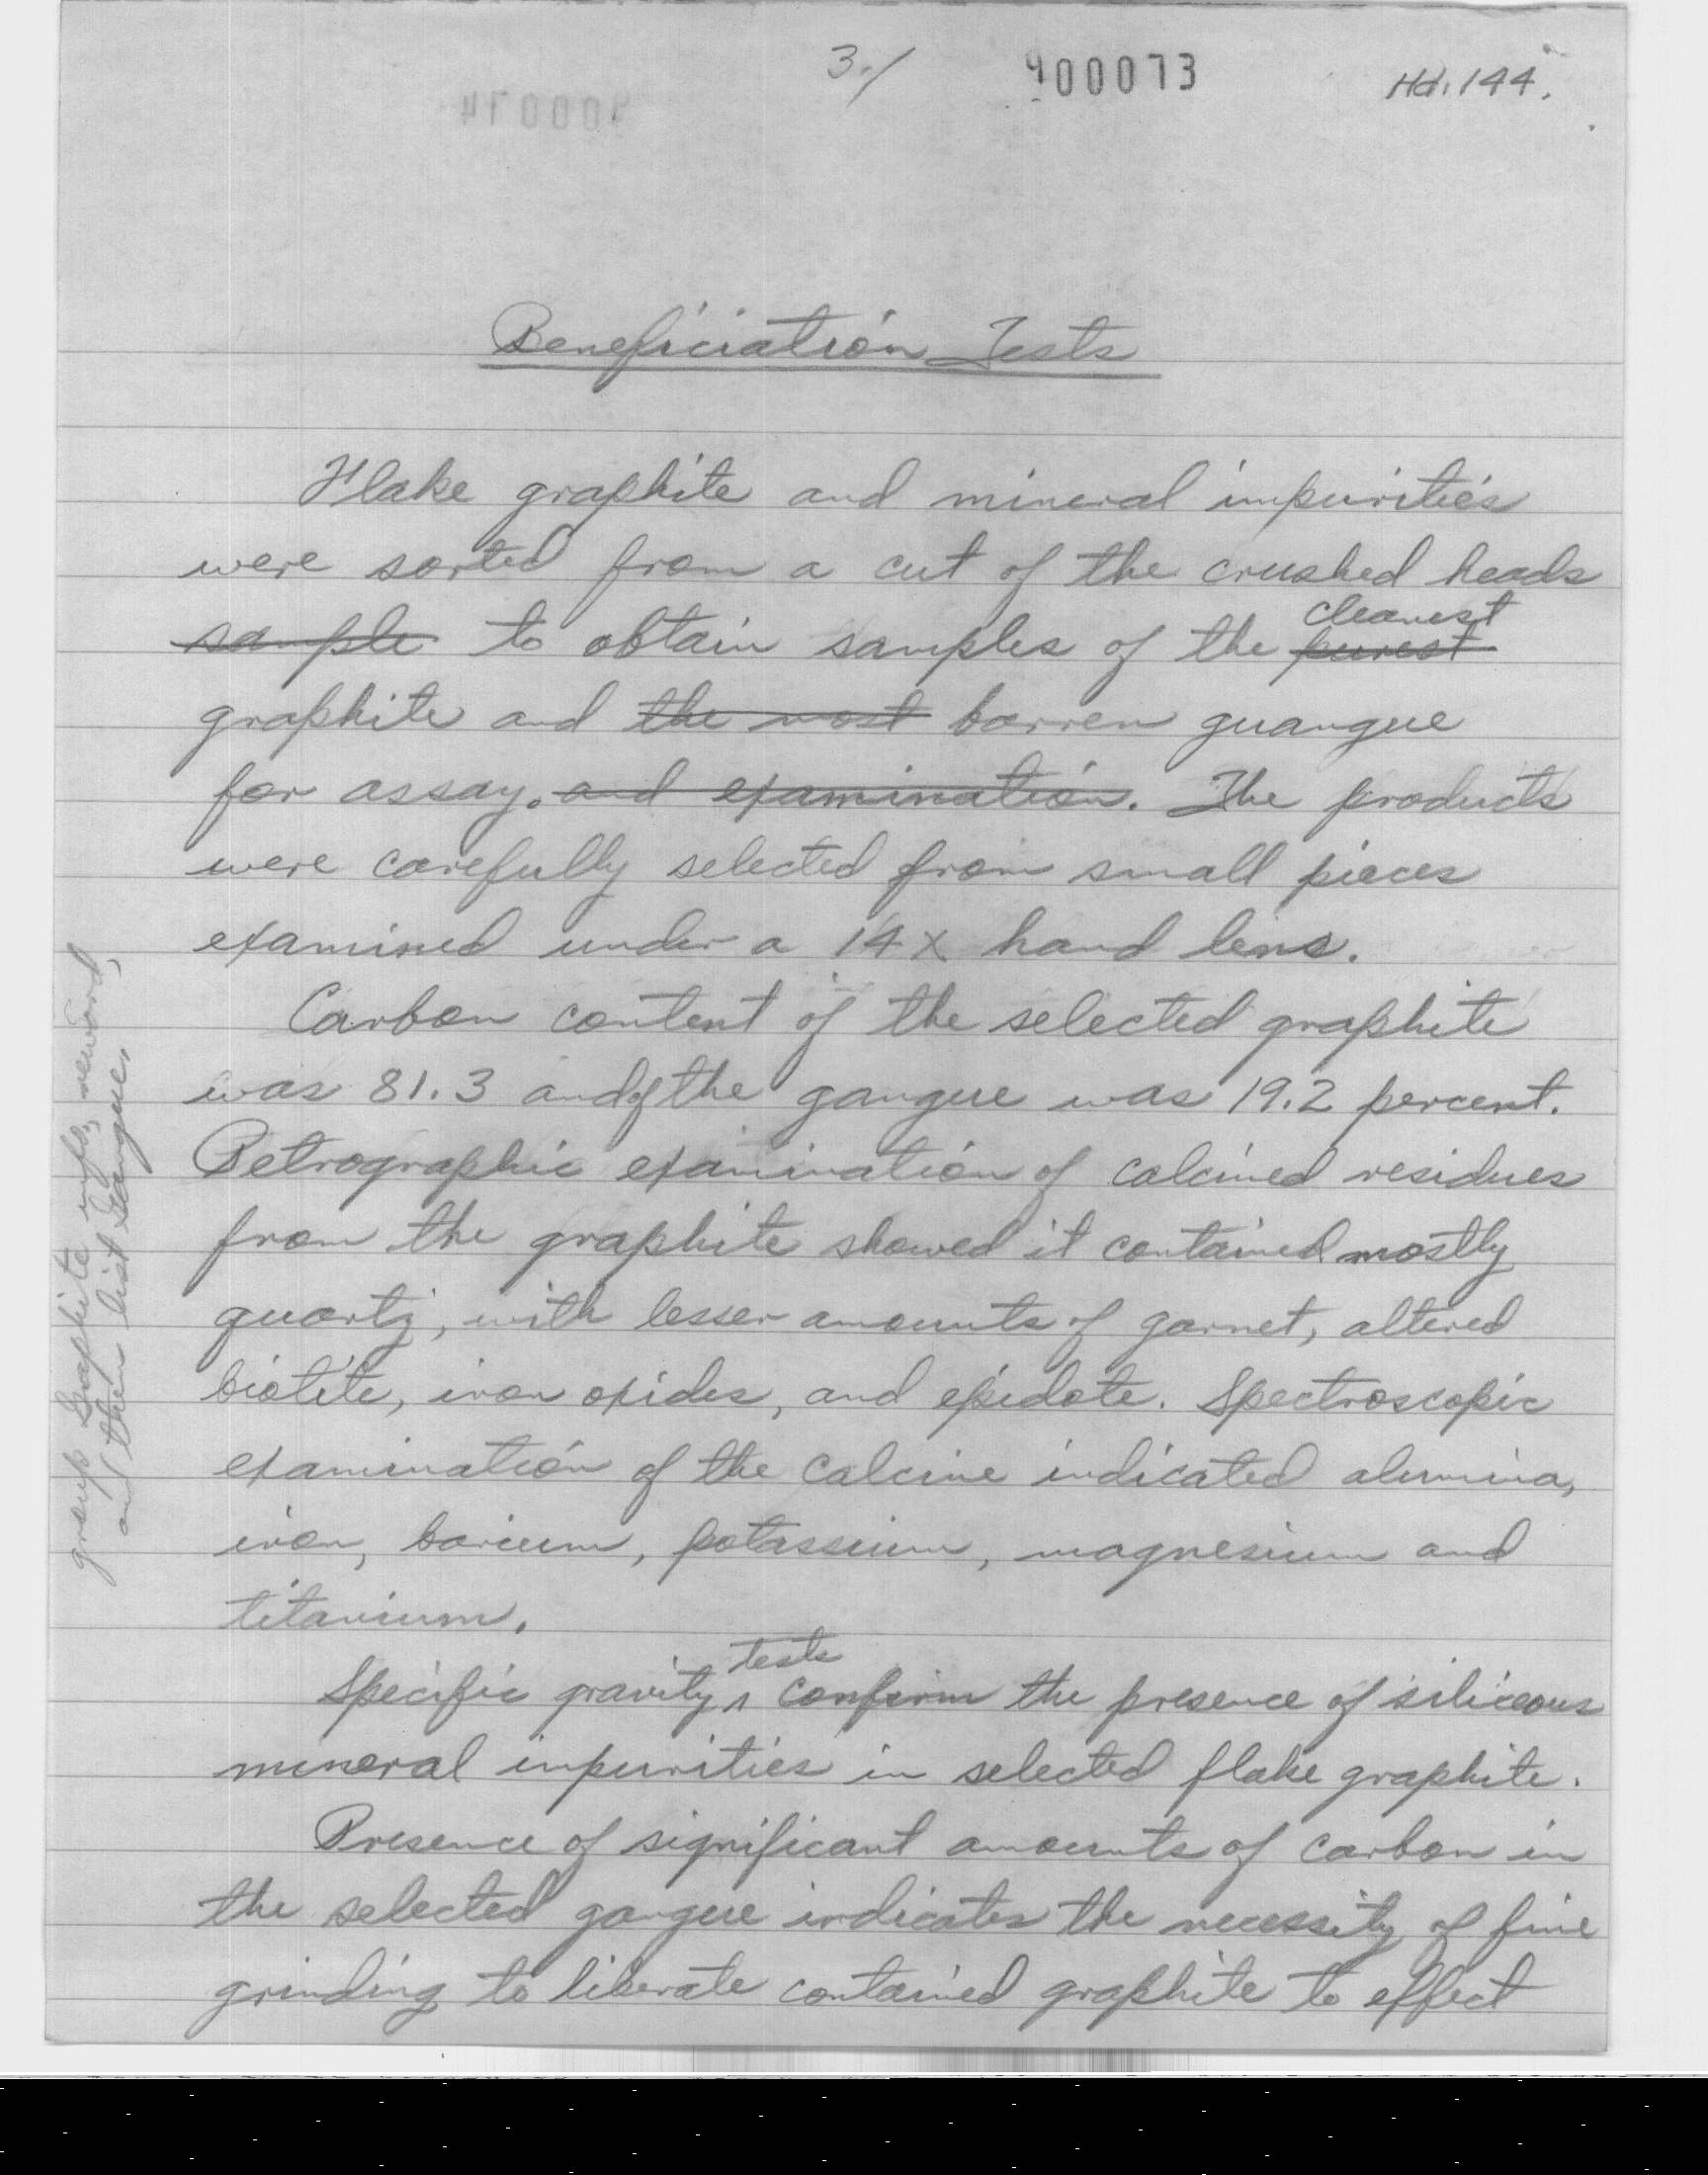 3./
400073
Hd. 144.
Beneficiation Tests
Flake graphite and mineral impurities
were sorted from a cut of the crushed heads
sample to obtain samples of the purest cleanest
graphite and the most barren guangue
for assay. and examination. The products
were carefully selected from small pieces
examined under a 14x hand lens.
Carbon content of the selected graphite
was 81.3 and of the gangue was 19.2 percent.
Petrographic examination of calcined residues
from the graphite showed it contained mostly
quartz, with lesser amounts of garnet, altered
biotite, iron oxides, and epidote. Spectroscopic
examination of the calcine indicated alumina,
iron, barium, potassium, magnesium and
titanium.
Specific gravity tests confirm the presence of siliceous
mineral impurities in selected flake graphite.
Presence of significant amounts of carbon in
the selected gangue indicates the necessity of fine
grinding to liberate contained graphite to effect
group Graphite info, reword,
and then list Gangue.